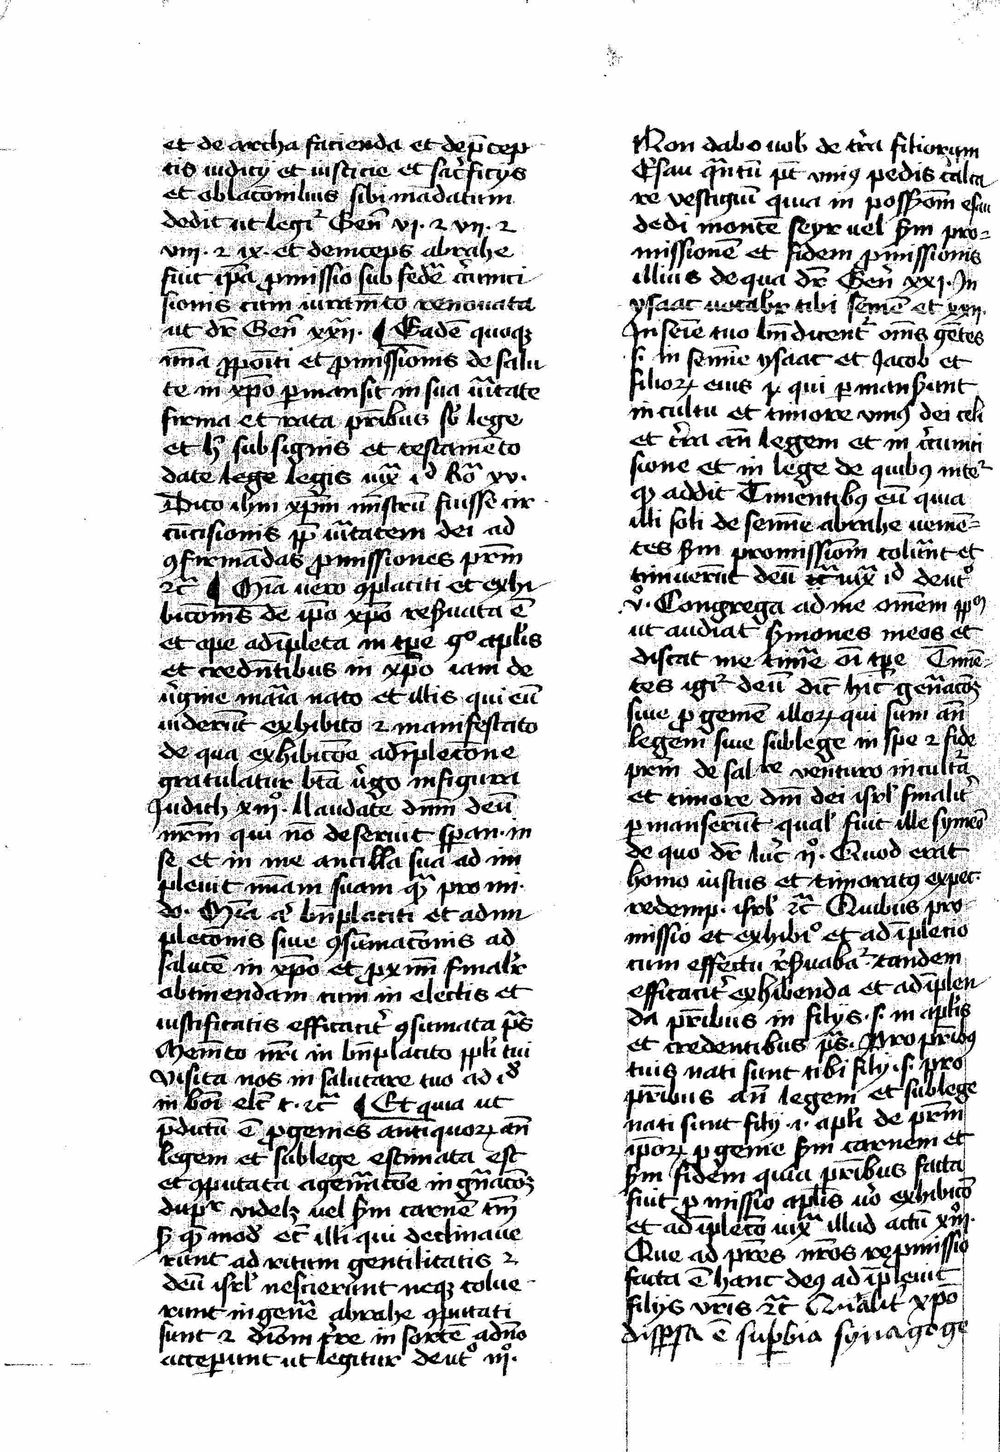 et de archa facienda et de p̄cep
tis iudicij et iusticie et sac̓ficijs
et oblac̄onibus sibi mādatum
dedit ut legit̓ Gen̄ vi. ⁊ vii. ⁊
viii. ⁊ ix. et deinceps abrahe
fuit ip̄a p̱missio sub feder̄ c̓cumci
sionis cum iuram̄to renouata
ut dr̄ Gen̄ xxii. ¶ Eadē quoqꝫ
p̱poīti et p̱missionis de salu
te in xp̄o ꝑmansit in sua ūitate
firma et rata pr̄ibus sb̓ lege
et sub signis et testamēto
date lege legis iuxͣ id̓ Ro͞ xv.
Dico ih̄m xp̄m mīstrū fuisse cir
cūcisionis pp̄ ūitatem dei ad
ꝯfirmādas p̱missiones pr̄m
⁊c̄ ¶ uero ꝯplaciti et exhi
bic̄onis de ip̄o xp̄o reẜuata ē
et ope adīpleta in tp̄e apl̓is
et credētibus in xp̄o iam de
u̓gine mar̄ia nato et illis qui eū
uiderūt exhibito ⁊ manifestato
de qua exhibic̄oe adīplec̄one
gratulatur bt̄a u̓go in figura
Iudith xiiiͦ. Laudate dnm̄ deū
nr̄m qui nō deseruit sp̱an. in
se et in me ancilla sua ad im
pleuit mīam suam qͣm promi.
do. bn̄placiti et adim
plec̄onis siue ꝯsūmac̄onis ad
salutē in xp̄o et pximi finalr̄
obtinendam tum in electis et
iustificatis efficacit̓ ꝯsūmata ps̄
Mem̄to nr̄i in bn̄placito pp̄li tui
visita nos in salutare tuo ad id̓
in boī elc̄ t. ⁊c̄ ¶ Et quia ut
p̄dictū ē p̱genies antiquoꝝ an̄
legem et sub lege estimata est
et ꝯputata agen̄ac̄oe in gn̄ac̄oꝫ
dupr̓ videlꝫ uel ẜm carnē tm̄
ẜ qͣ mod̓ et̄ illi qui declinaue
runt ad ritum gentilitatis ⁊
deū isrl̓ nescierūt neqꝫ colue
runt in gen̄e abrahe ꝯputati
sunt ⁊ t̓re in sortē adn̄o
acceperunt ut legitur deutͦ iiͦ.
Non dabo uob̓ de t̓ra filiorum
Esau qͣntū pt̄ vniꝰ pedis calca
re vestigiū quia in possess̄om̄ esau
dedi montē seyr uel ẜm pro=
missionē et fidem p̱missionis
illius de qua dr̄ Gen̄ xxi. In
ysaac uocabr̄ tibi semē et xxii.
In sēie tuo bn̄dicent̓ om̄s gētes
s. in semīe ysaac et Jacob et
filioꝝ eius ⁊ qui ꝑmanẜunt
in cultu et timore vniꝰ dei celi
et t̓ra an̄ legem et in c̓cunci
sione et in lege de quibꝰ inter̓
addit Timētibꝰ eū quia
illi soli de semīe abrahe uenien=
tes ẜm promissionē colūnt et
timuerūt deū iuxͣ id̓ deutͦ
vͦ. Congrega ad me omēm pp̄lm̄
ut audiat ẜmones meos et
discat me timē oī tp̄e Timē=
tes igit̓ deū dic̄ hic gen̄acoꝫ
siue p̱geniē illoꝝ qui sunt an̄
legem siue sub lege in spe ⁊ fide
pr̄m de saltre venturo in cultū
et timore dn̄i dei isrl̓ finalit̓
ꝑmanserūt qual̓ fuit ille symeō
de quo dr̄ luc̓ iiͦ. Quod erat
homo iustus et timoratꝰ expec.
redemp. isrl̓ ⁊c̄ Quibus pro
missio et exhibiͦ et adīpletio
cum effectu r̓ẜuabat̓ tandem
efficacit̓ exhibenda et adīplen
da pr̄ibus in filijs. s. in apl̓is
et credentibus ps̄. Pro pr̄ibꝰ
tuis nati sunt tibi filij. s. pro
pr̄ibus an̄ legem et sub lege
nati sunt filij. i. apl̓i de pr̄m
ip̄oꝝ p̱genie ẜm carnem et
ẜm fidem quia pr̄ibus facta
fuit p̱missio apl̓is uͦ exhibic̄o
et adīplec̄o iuxͣ illud actū xiiiͦ.
Que ad pr̄es nr̄os rep̱missio
facta ē hanc deꝰ adīpleuit
filijs vr̄is ⁊c̄ Qualit̓ xp̄o
disp̱sa ē suꝑbia synagoge